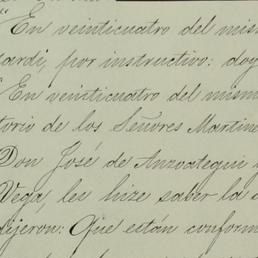 "En veinticuatro del mism
ardi, por instructivo: doy
"En veinticuatro del mismo
torio de los Señores Martine
Don José de Anzoategui y
Vega, les hize saber la
dijeron: Que están conform